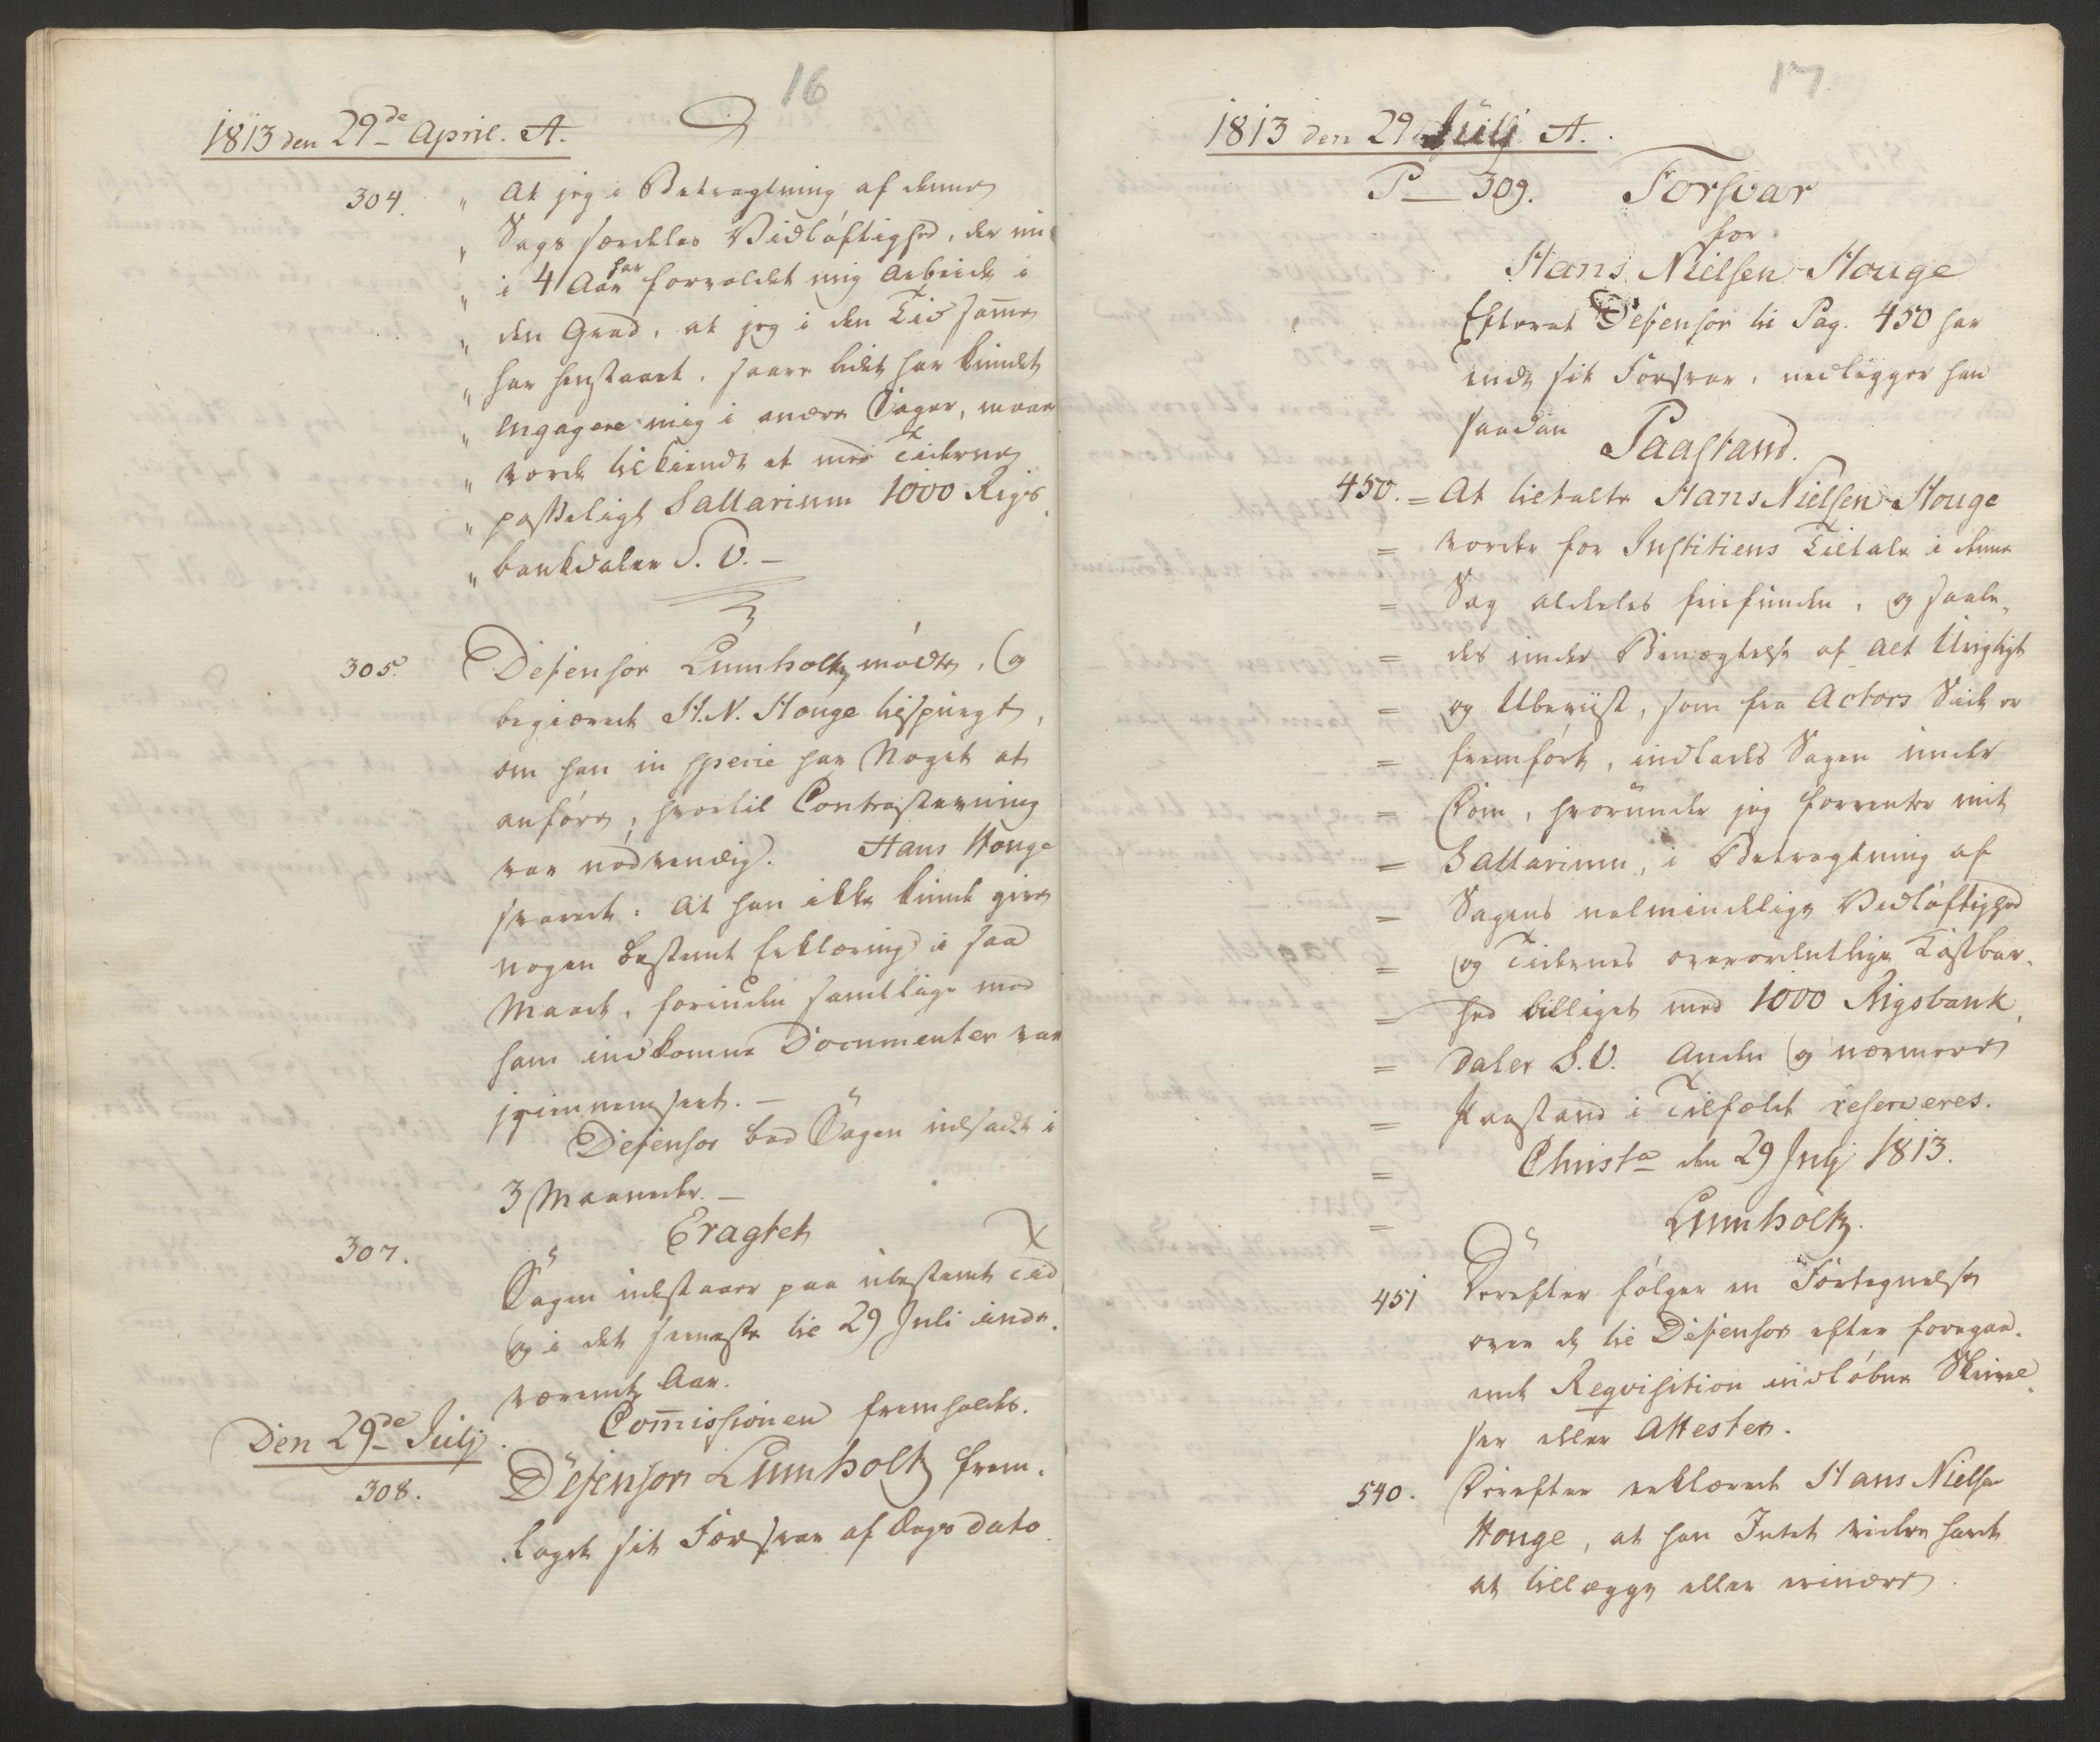 16
1813 den 29de April. A.
304. " At jeg i Betragtning af denne
" Sags særdeles Vidløftighed, der nu
" i 4 Aar har forvoldet mig Arbeide i
" den Grad, at jeg i den Tid samme
" har henstaaet, saare lidet har kundet
" engagere mig i andre Sager, maae
" vorde tilkiendt et med Tiderne
" passeligt Sallarium 1000 Rigs
" bankdaler S. V. –
305. Defensor Lumholtz mødte, og
begiærede H. N. Houge tilspurgt,
om han in specie har Noget at
anføre, hvortil Contrastævning
var nødvendig. Hans Houge
svarede: At han ikke kunde give
nogen bestemt Erklæring i saa
Maade, forinden samtlige mod
ham indkomne Documenter var
igiennemseet. –
Defensor bad Sagen udsadt i
3 Maaneder. –
Eragtet
307. Sagen udstaaer paa ubestemt Tid
og i det seeneste til 29 Juli inde-
værende Aar.
Den 29de Julj. Com̄issionen fremholdes.
308. Defensor Lumholtz frem-
lagde sit Forsvar af Dags dato
17
1813 den 29 Julj A.
P 309. Forsvar
for
Hans Nielsen Houge
Efterat Defensor til Pag. 450 har
endt sit Forsvar, nedlægger han
saadan Paastand.
450. = At tiltalte Hans Nielsen Houge
= vorder for Justitiens Tiltale i denne
= Sag aldeles friefunden, og saale-
= des under Benægtelse af alt Urigtigt
= og Ubeviist, som fra Actors Side er
= fremført, indlades Sagen under
= Dom, hvorunder jeg forventer mit
= Sallarium, i Betragtning af
= Sagens ualmindelige Vidløftighed
= og Tidernes overordentlige Kostbar-
= hed billiget med 1000 Rigsbank
= daler S. V. Anden og nærmere
= Paastand i Tilfælde reserveres.
= Christa den 29 Julj 1813.
= Lumholtz.
451 Derefter følger en Fortegnelse
over de til Defensor efter foregaa-
ende Reqvisition indløbne Skrivel-
ser eller Attester.
540. Derefter erklærede Hans Nielsen
Houge, at han Intet videre havde
at tillægge eller erindre.